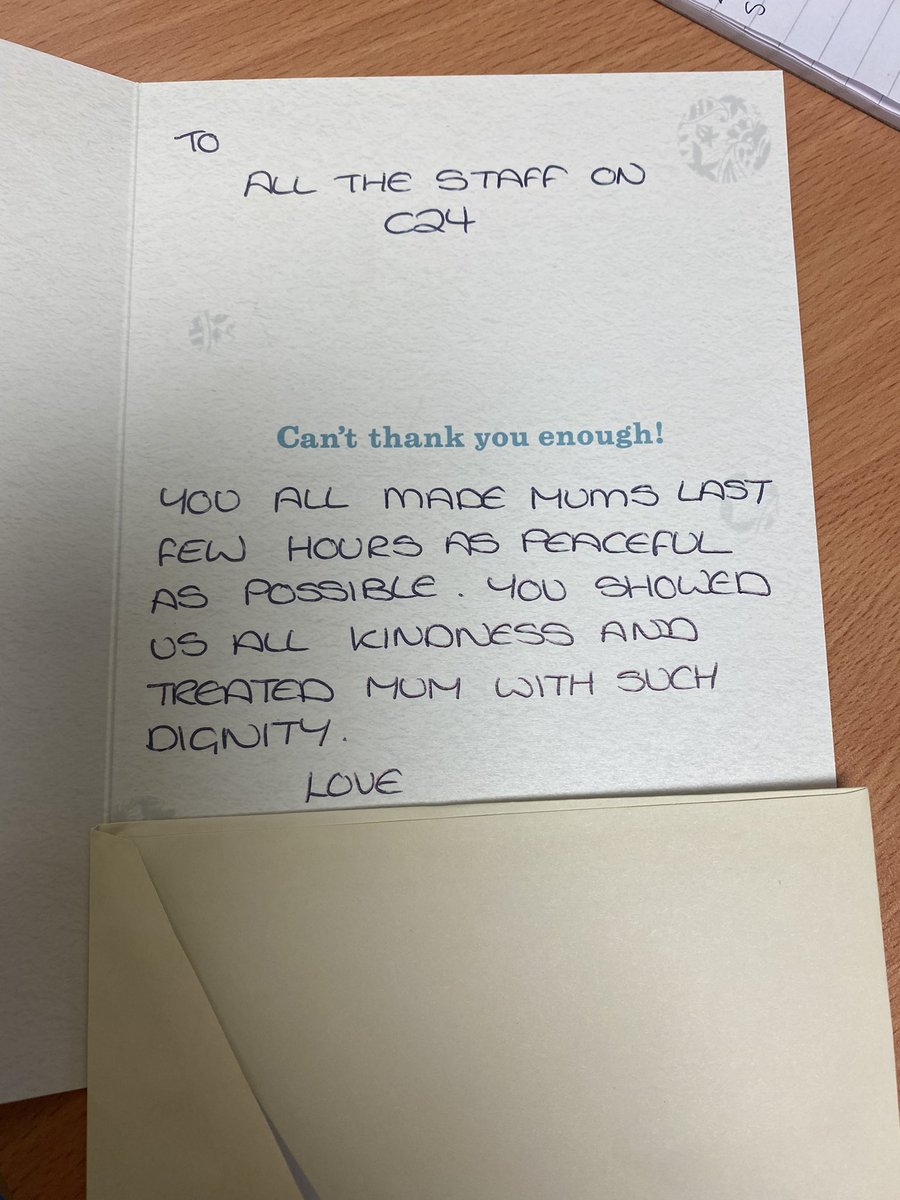 TO
ALL THE STAFF ON
C24
Can't thank you enough!
YOU ALL MADE MUMS LAST
FEW HOURS AS PEACEFUL
AS POSSIBLE. YOU SHOWED
US ALL KINDNESS AND
TREATED MUM WITH SUCH
DIGNITY.
LOVE